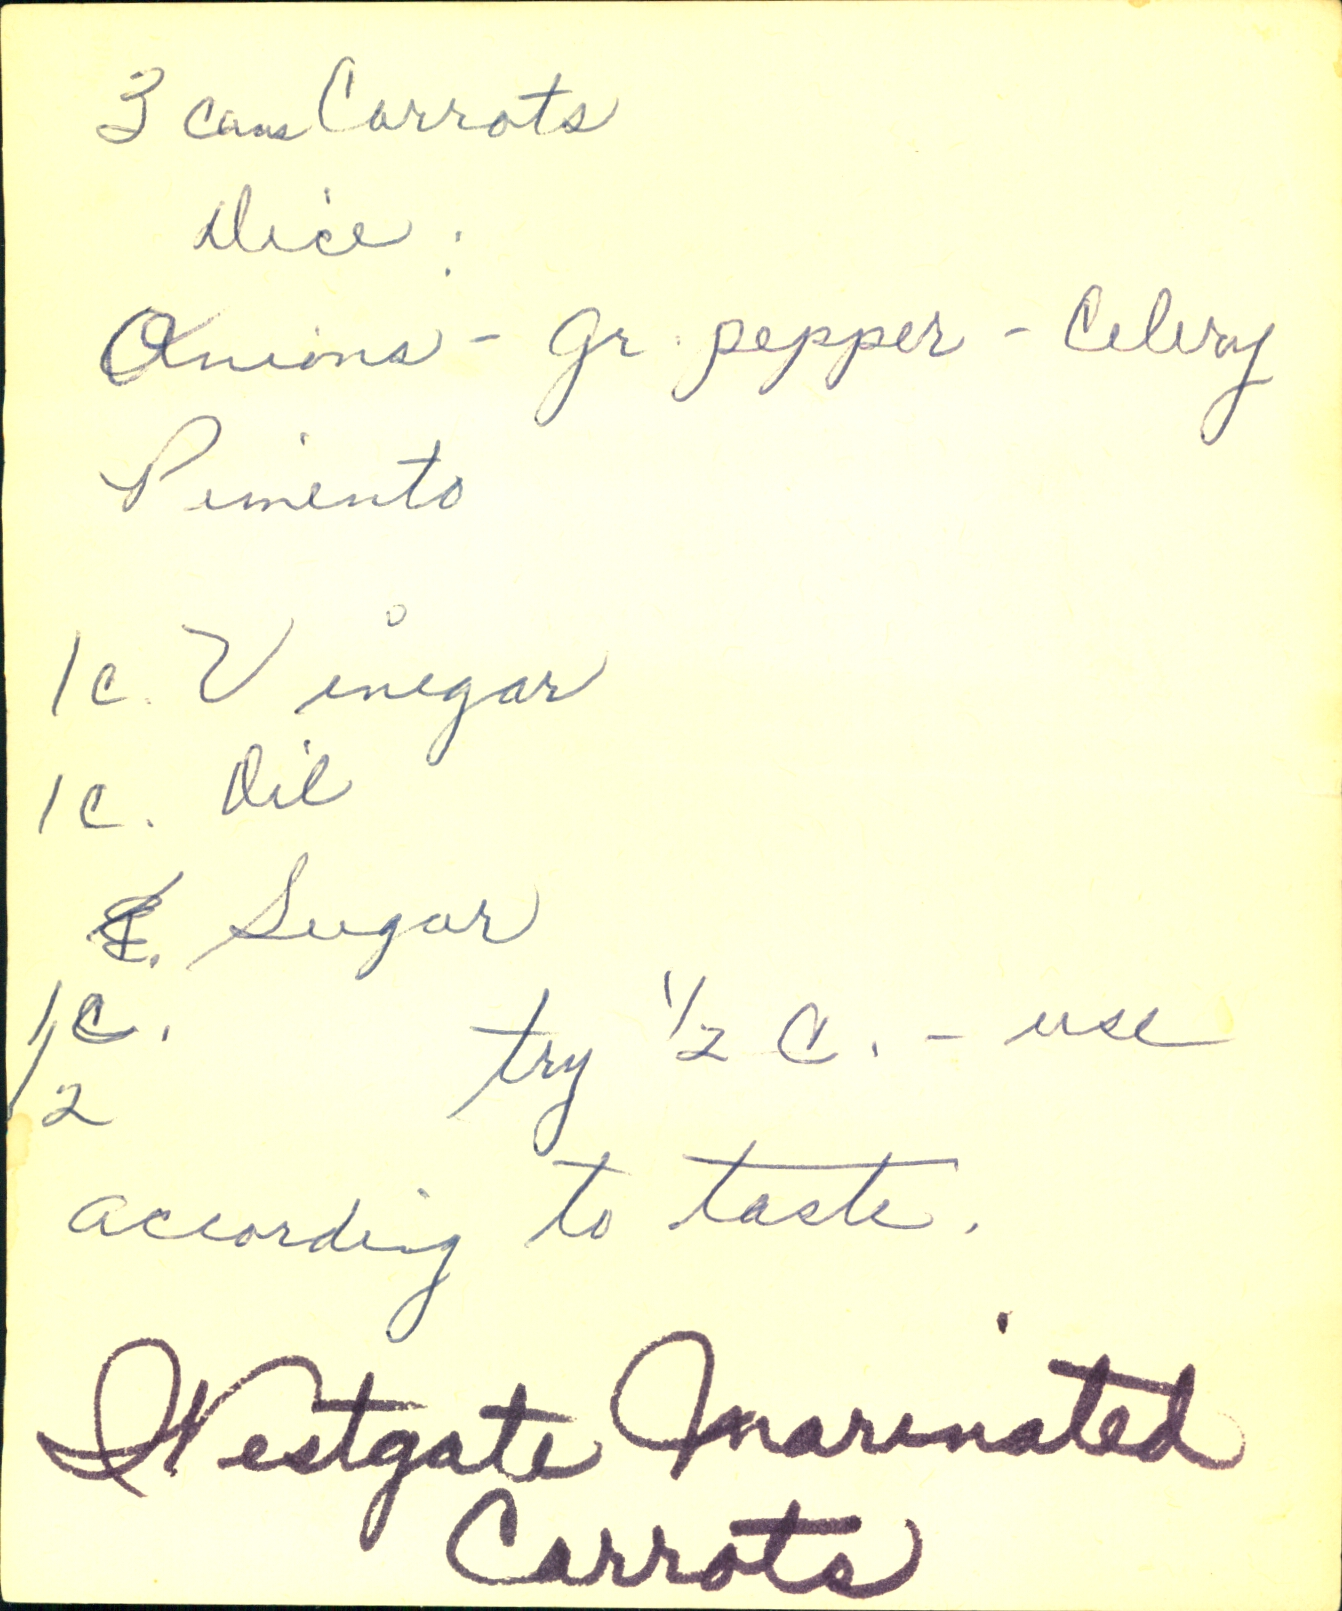 3 cans Carrots
Dice :
Onions - gr. pepper - Celery
Pimento
1 c. Vinegar
1 c. Oil
Sugar
1/2 c.
try 1/2 C. - use
according to taste.
Westgate Marinated
Carrots